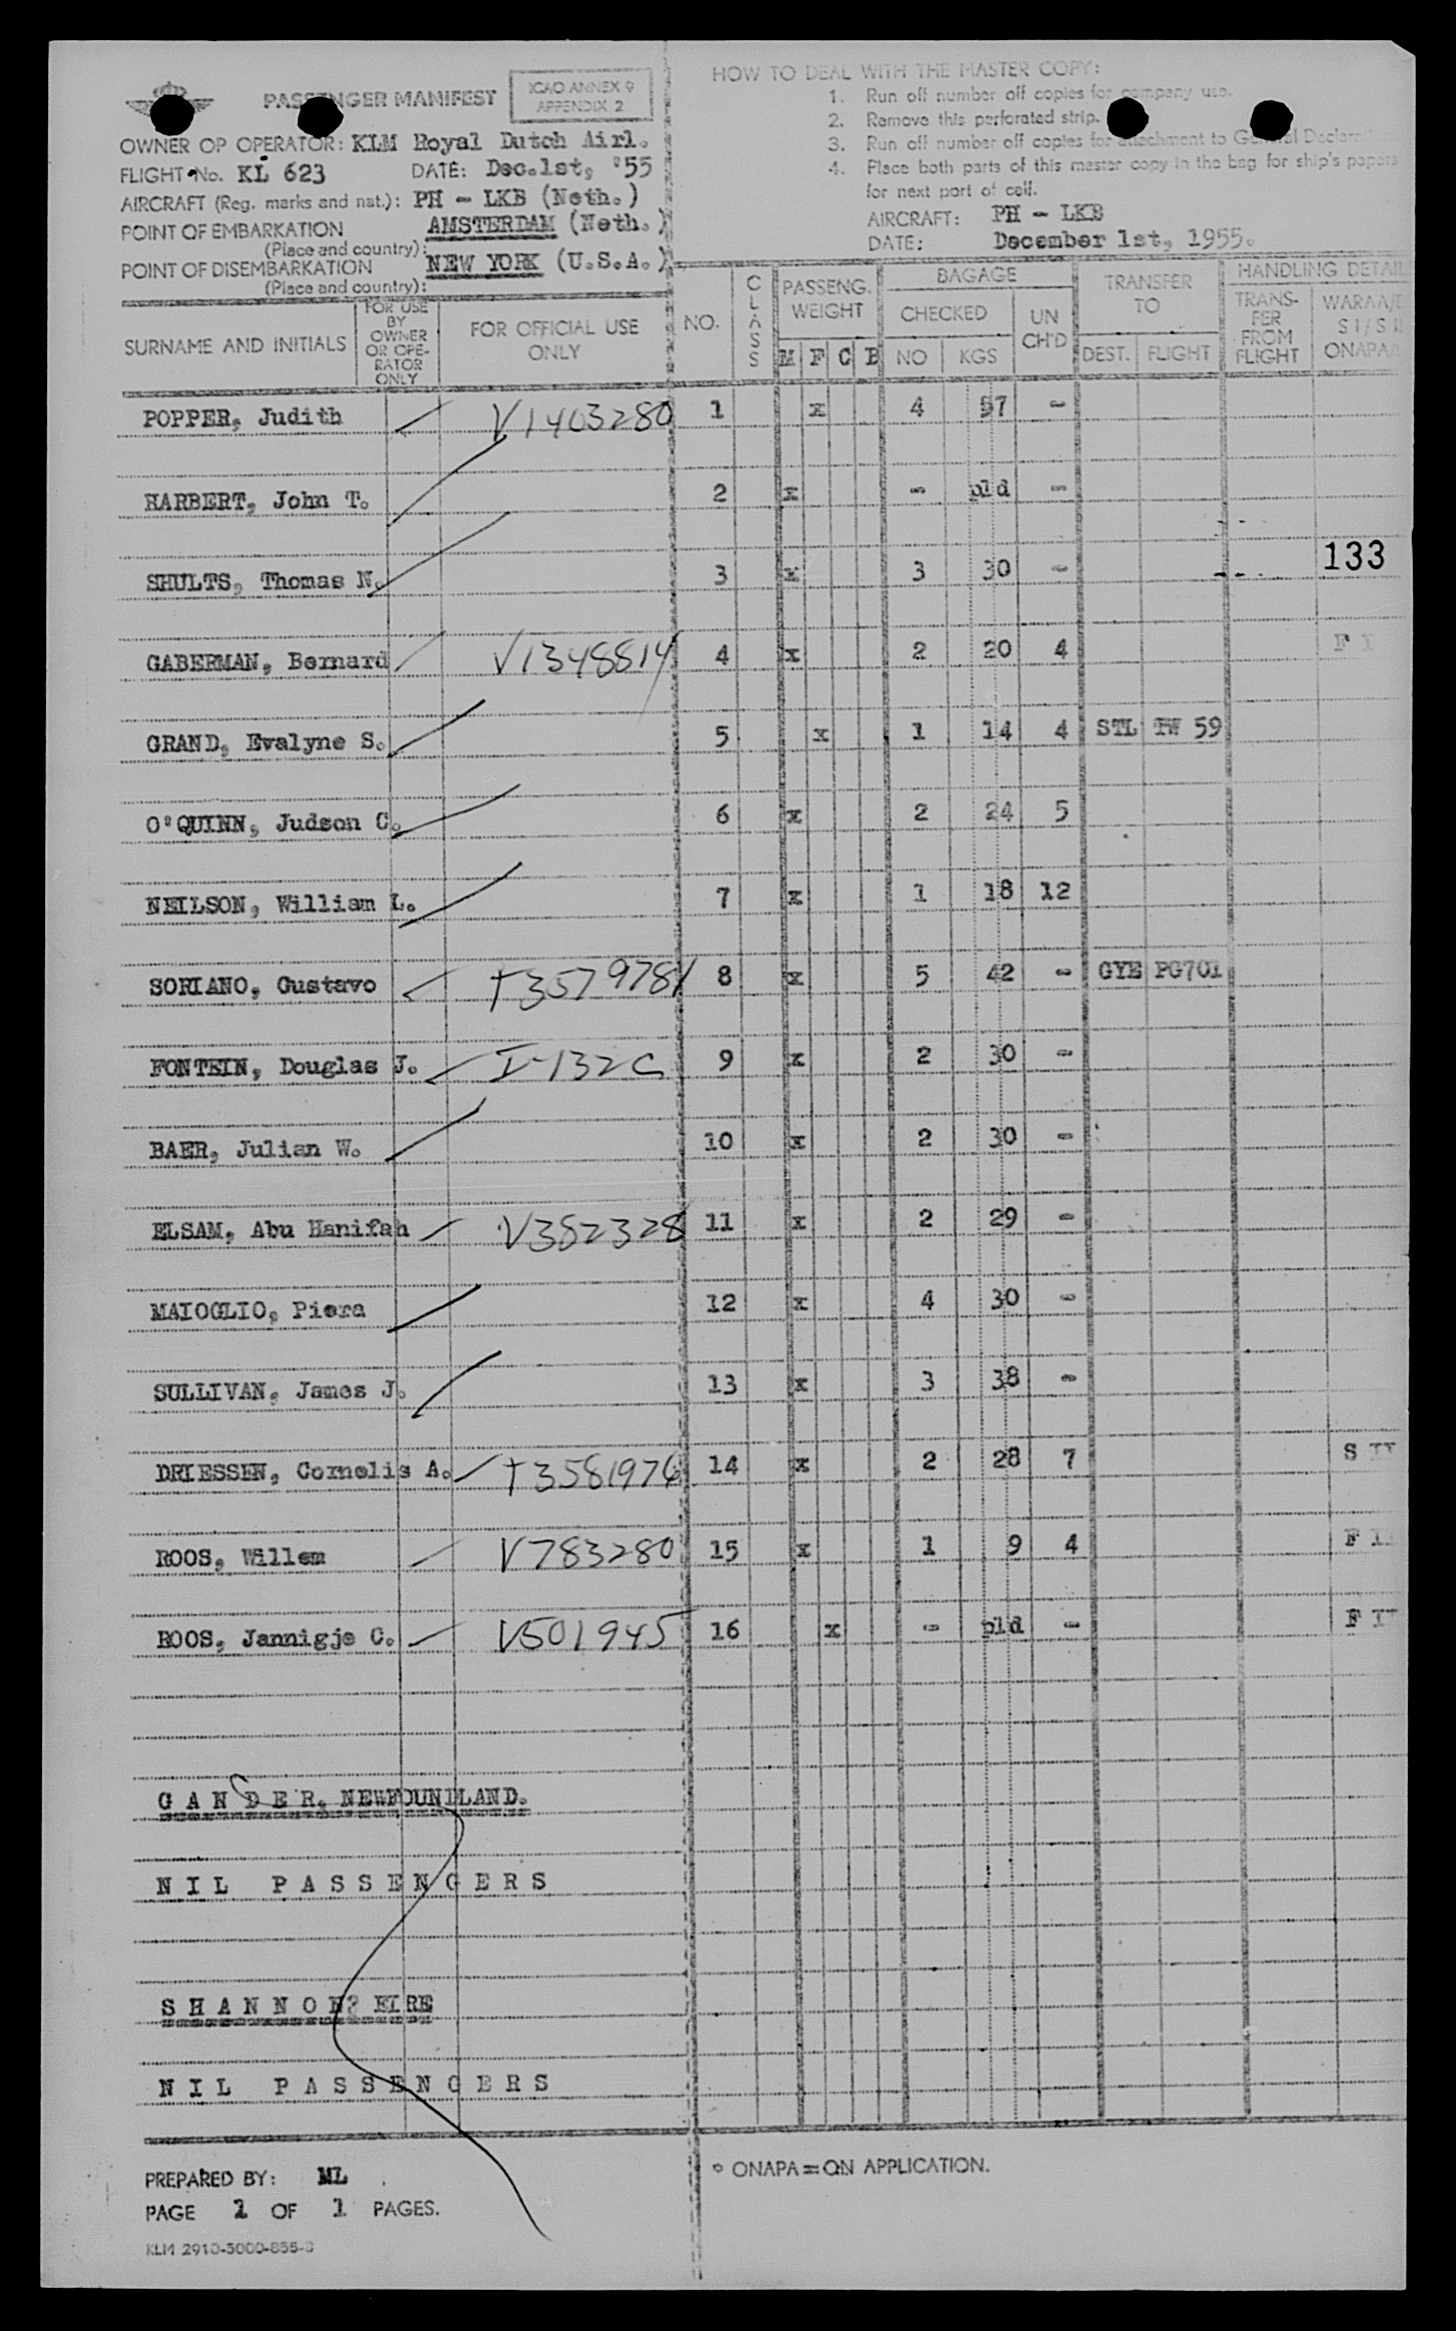 PASSENGER MANIFEST
ICAO ANNEX 9
APPENDIX 2
OWNER OP OPERATOR: KLM Royal Dutch Airl.
FLIGHT No. KL 623 DATE: Dec.1st, '55
AIRCRAFT (Reg. marks and nat.): PH - LKB (Neth.)
POINT OF EMBARKATION AMSTERDAM (Neth.)
(Place and country):
POINT OF DISEMBARKATION NEW YORK (U.S.A.)
(Place and country):
HOW TO DEAL WITH THE MASTER COPY:
1. Run off number off copies for company use.
2. Remove this perforated strip.
3. Run off number off copies for attachment to General Declarat
4. Place both parts of this master copy in the bag for ship's papers
for next port of call.
AIRCRAFT: PH - LKB
DATE: December 1st, 1955.
SURNAME AND INITIALS
FOR USE
BY
OWNER
OR OPE-
RATOR
ONLY
FOR OFFICIAL USE
ONLY
NO.
CLASS
PASSENG.
WEIGHT
M F C B
BAGAGE
CHECKED
NO KGS
UN
CH'D
TRANSFER
TO
DEST. FLIGHT
HANDLING DETAIL
TRANS-
FER
FROM
FLIGHT
POPPER, Judith V1403280 1 x 4 57 -
HARBERT, John T. 2 x - pld -
SHULTS, Thomas N. 3 x 3 30 - 133
GABERMAN, Bernard V1348814 4 x 2 20 4 F I
GRAND, Evalyne S. 5 x 1 14 4 STL TW 59
O'QUINN, Judson C. 6 x 2 24 5
NEILSON, William L. 7 x 1 18 12
SORIANO, Gustavo T3579781 8 x 5 42 - GYE PG701
FONTEIN, Douglas J. I-132C 9 x 2 30 -
BAER, Julian W. 10 x 2 30 -
ELSAM, Abu Hanifah V352328 11 x 2 29 -
MAIOGLIO, Piera 12 x 4 30 -
SULLIVAN, James J. 13 x 3 38 -
DRIESSEN, Cornelis A. T3581976 14 x 2 28 7 S II
ROOS, Willem V783280 15 x 1 9 4 F II
ROOS, Jannigje C. V501945 16 x - pld - F II
G A N D E R, NEWFOUNDLAND.
N I L P A S S E N G E R S
S H A N N O N? EIRE
N I L P A S S E N G E R S
PREPARED BY: ML
PAGE 1 OF 1 PAGES.
KLM 2910-5000-855-
° ONAPA = ON APPLICATION.